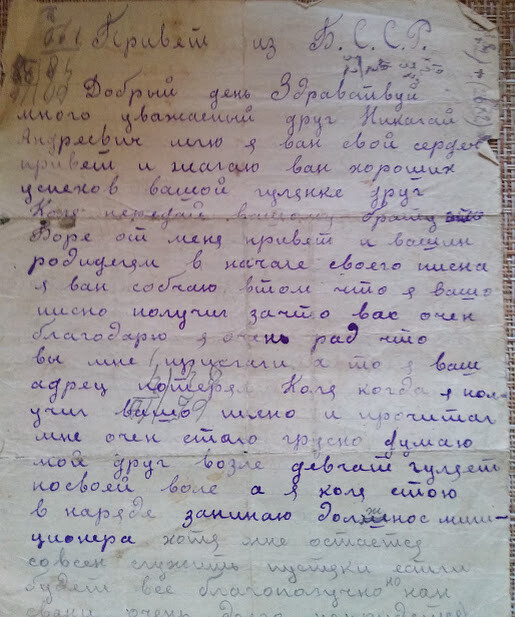 Привет из Б.С.С.Р.
Добрый день Здравствуй
много уважаемый друг Николай
Андреевич шлю я вам свой сердеч
привет и желаю вам хороших
успехов вашой гулянке друг
Коля передай вашому брату
Боре от меня привет и вашим
родителям в начале своего писма
я вам собчаю втом что я вашо
писмо получил зачто вас очен
благодарю я очень рад что
вы мне прислали а то я ваш
адрец потерял Коля когда я пол
учил вашо писмо и прочитал
мне очен стало грусно думаю
мой друг возле девчат гуляет
посвоей воле а я коля стою
в наряде занимаю должнос мили-
ционера хотя мне остается
совсем служить пустяки если
будет все благополучно но нам
очень долго